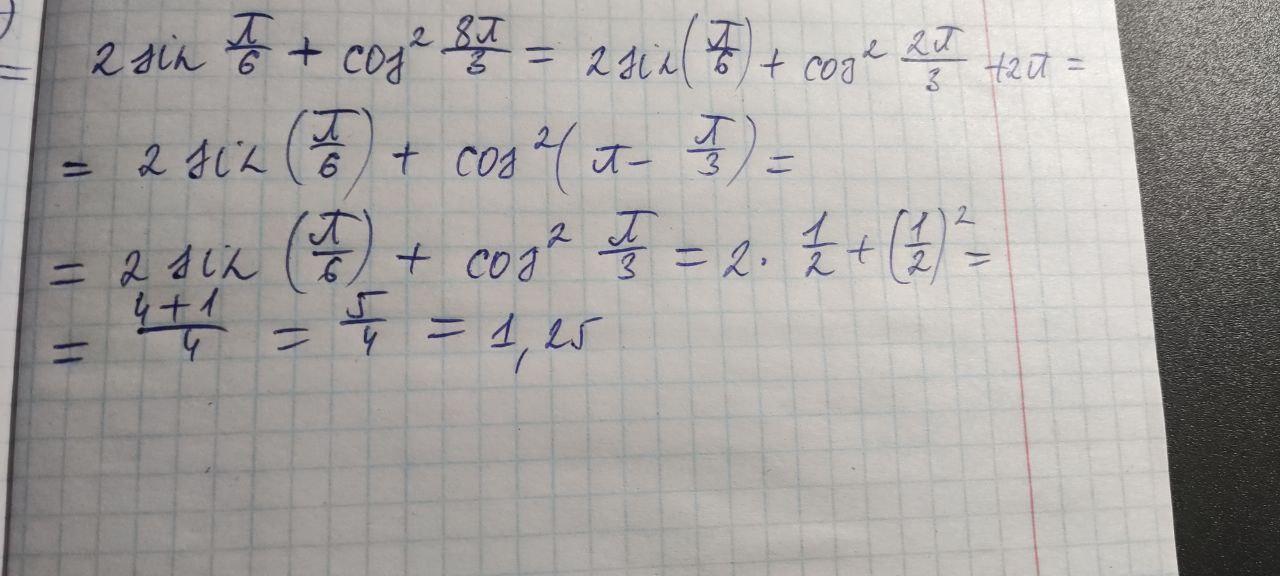 2 sin π/6 + cos² 8π/3 = 2 sin(π/6) + cos² 2π/3 + 2π =
= 2 sin (π/6) + cos² (π - π/3) =
= 2 sin (π/6) + cos² π/3 = 2 · 1/2 + (1/2)² =
= (4+1)/4 = 5/4 = 1,25